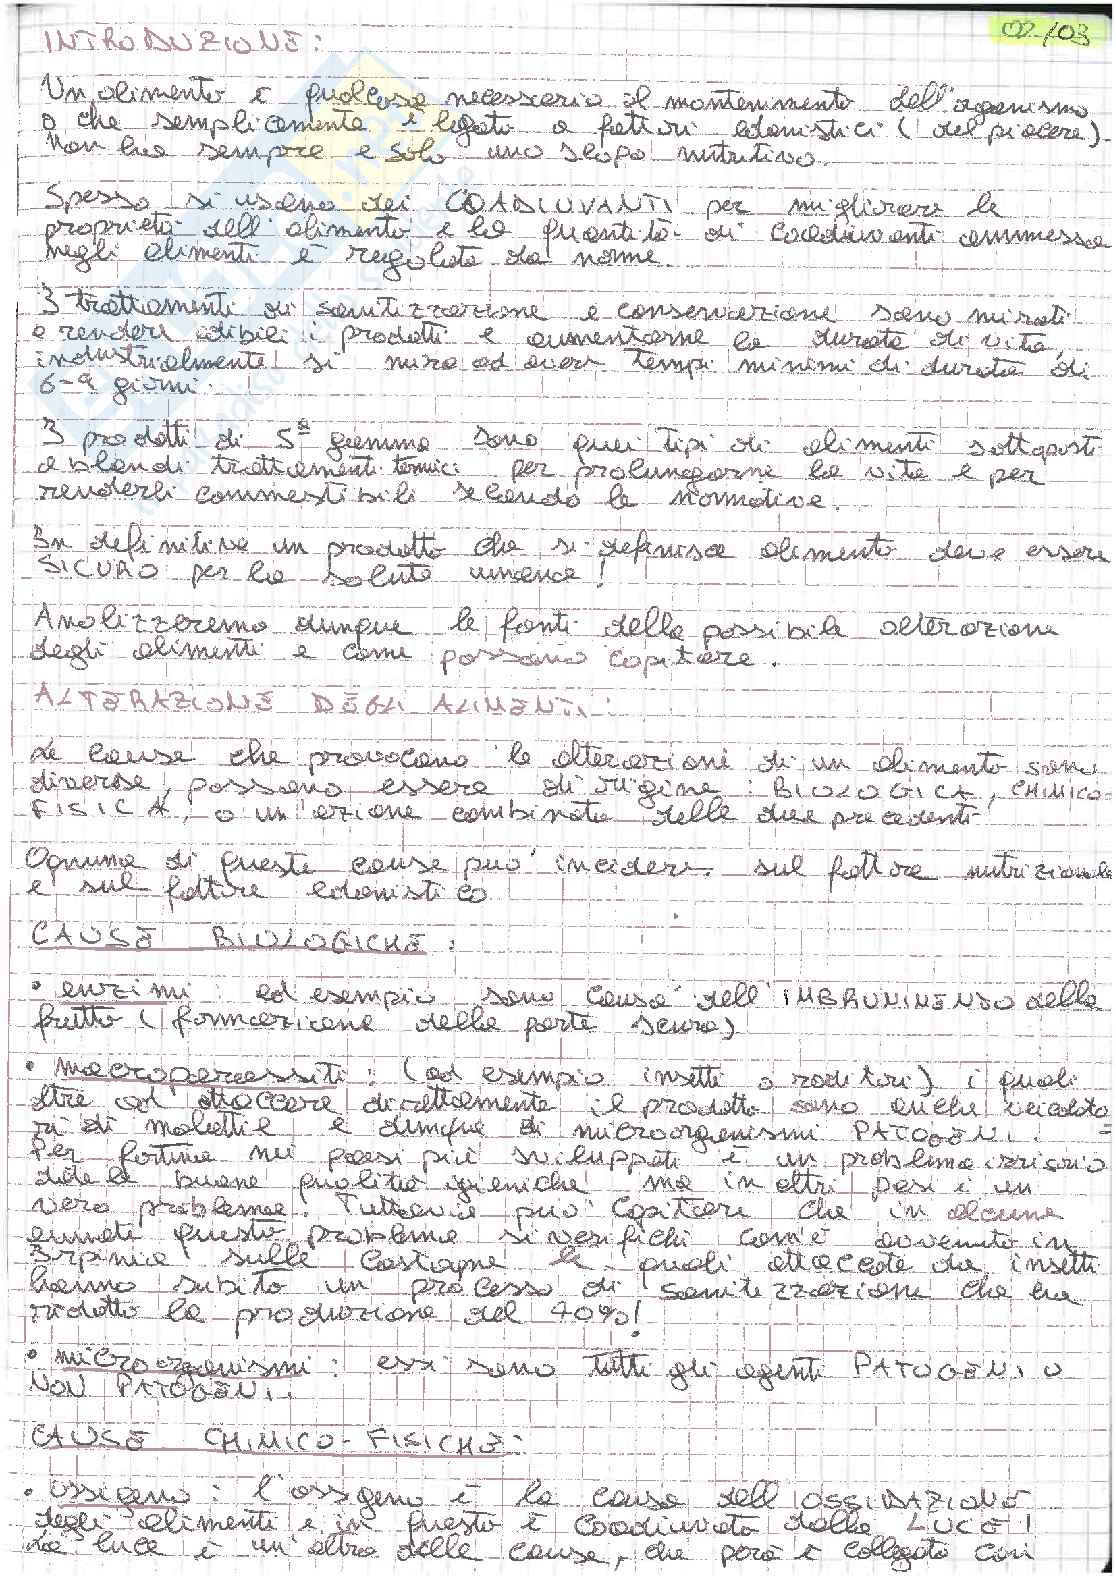 02/03
INTRODUZIONE:
Un alimento è qualcosa necessario al mantenimento dell'organismo
o che semplicemente è legato a fattori edonistici (del piacere).
Non ha sempre e solo uno scopo nutritivo.
Spesso si usano dei COADIUVANTI per migliorare le
proprietà dell'alimento e la quantità di coadiuvanti ammessa
negli alimenti è regolata da norme.
I trattamenti di sanitizzazione e conservazione sono mirati
a rendere edibili i prodotti e aumentarne la durata di vita,
industrialmente si mira ad avere tempi minimi di durata di
6-9 giorni.
I prodotti di 5ª gamma sono quei tipi di alimenti sottoposti
a blandi trattamenti termici per prolungarne la vita e per
renderli commestibili secondo le normative.
In definitiva un prodotto che si definisce alimento deve essere
SICURO per la salute umana!
Analizzeremo dunque le fonti della possibile alterazione
degli alimenti e come possano capitare.
ALTERAZIONE DEGLI ALIMENTI:
Le cause che provocano le alterazioni di un alimento sono
diverse, possono essere di origine: BIOLOGICA, CHIMICO-
FISICA, o un'azione combinata delle due precedenti
Ognuna di queste cause può incidere sul fattore nutrizionale
e sul fattore edonistico
CAUSE BIOLOGICHE:
• enzimi: ad esempio sono causa dell'IMBRUNIMENTO della
frutta (formazione della parte scura)
• macroparassiti: (ad esempio insetti o roditori) i quali
oltre ad attaccare direttamente il prodotto sono anche veicolato
ri di malattie e dunque di microorganismi PATOGENI.
Per fortuna nei paesi più sviluppati è un problema irrisorio
date le buone qualità igieniche ma in altri paesi è un
vero problema. Tuttavia può capitare che in alcune
annate questo problema si verifichi com'è avvenuto in
Irpinia sulle castagne le quali attaccate da insetti
hanno subito un processo di sanitizzazione che ha
ridotto la produzione del 40%!
• microorganismi: essi sono tutti gli agenti PATOGENI o
NON PATOGENI.
CAUSE CHIMICO-FISICHE:
• ossigeno: l'ossigeno è la causa dell'OSSIDAZIONE
degli alimenti e in questo è coadiuvato dalla LUCE!
La luce è un'altra delle cause, che però è collegata con